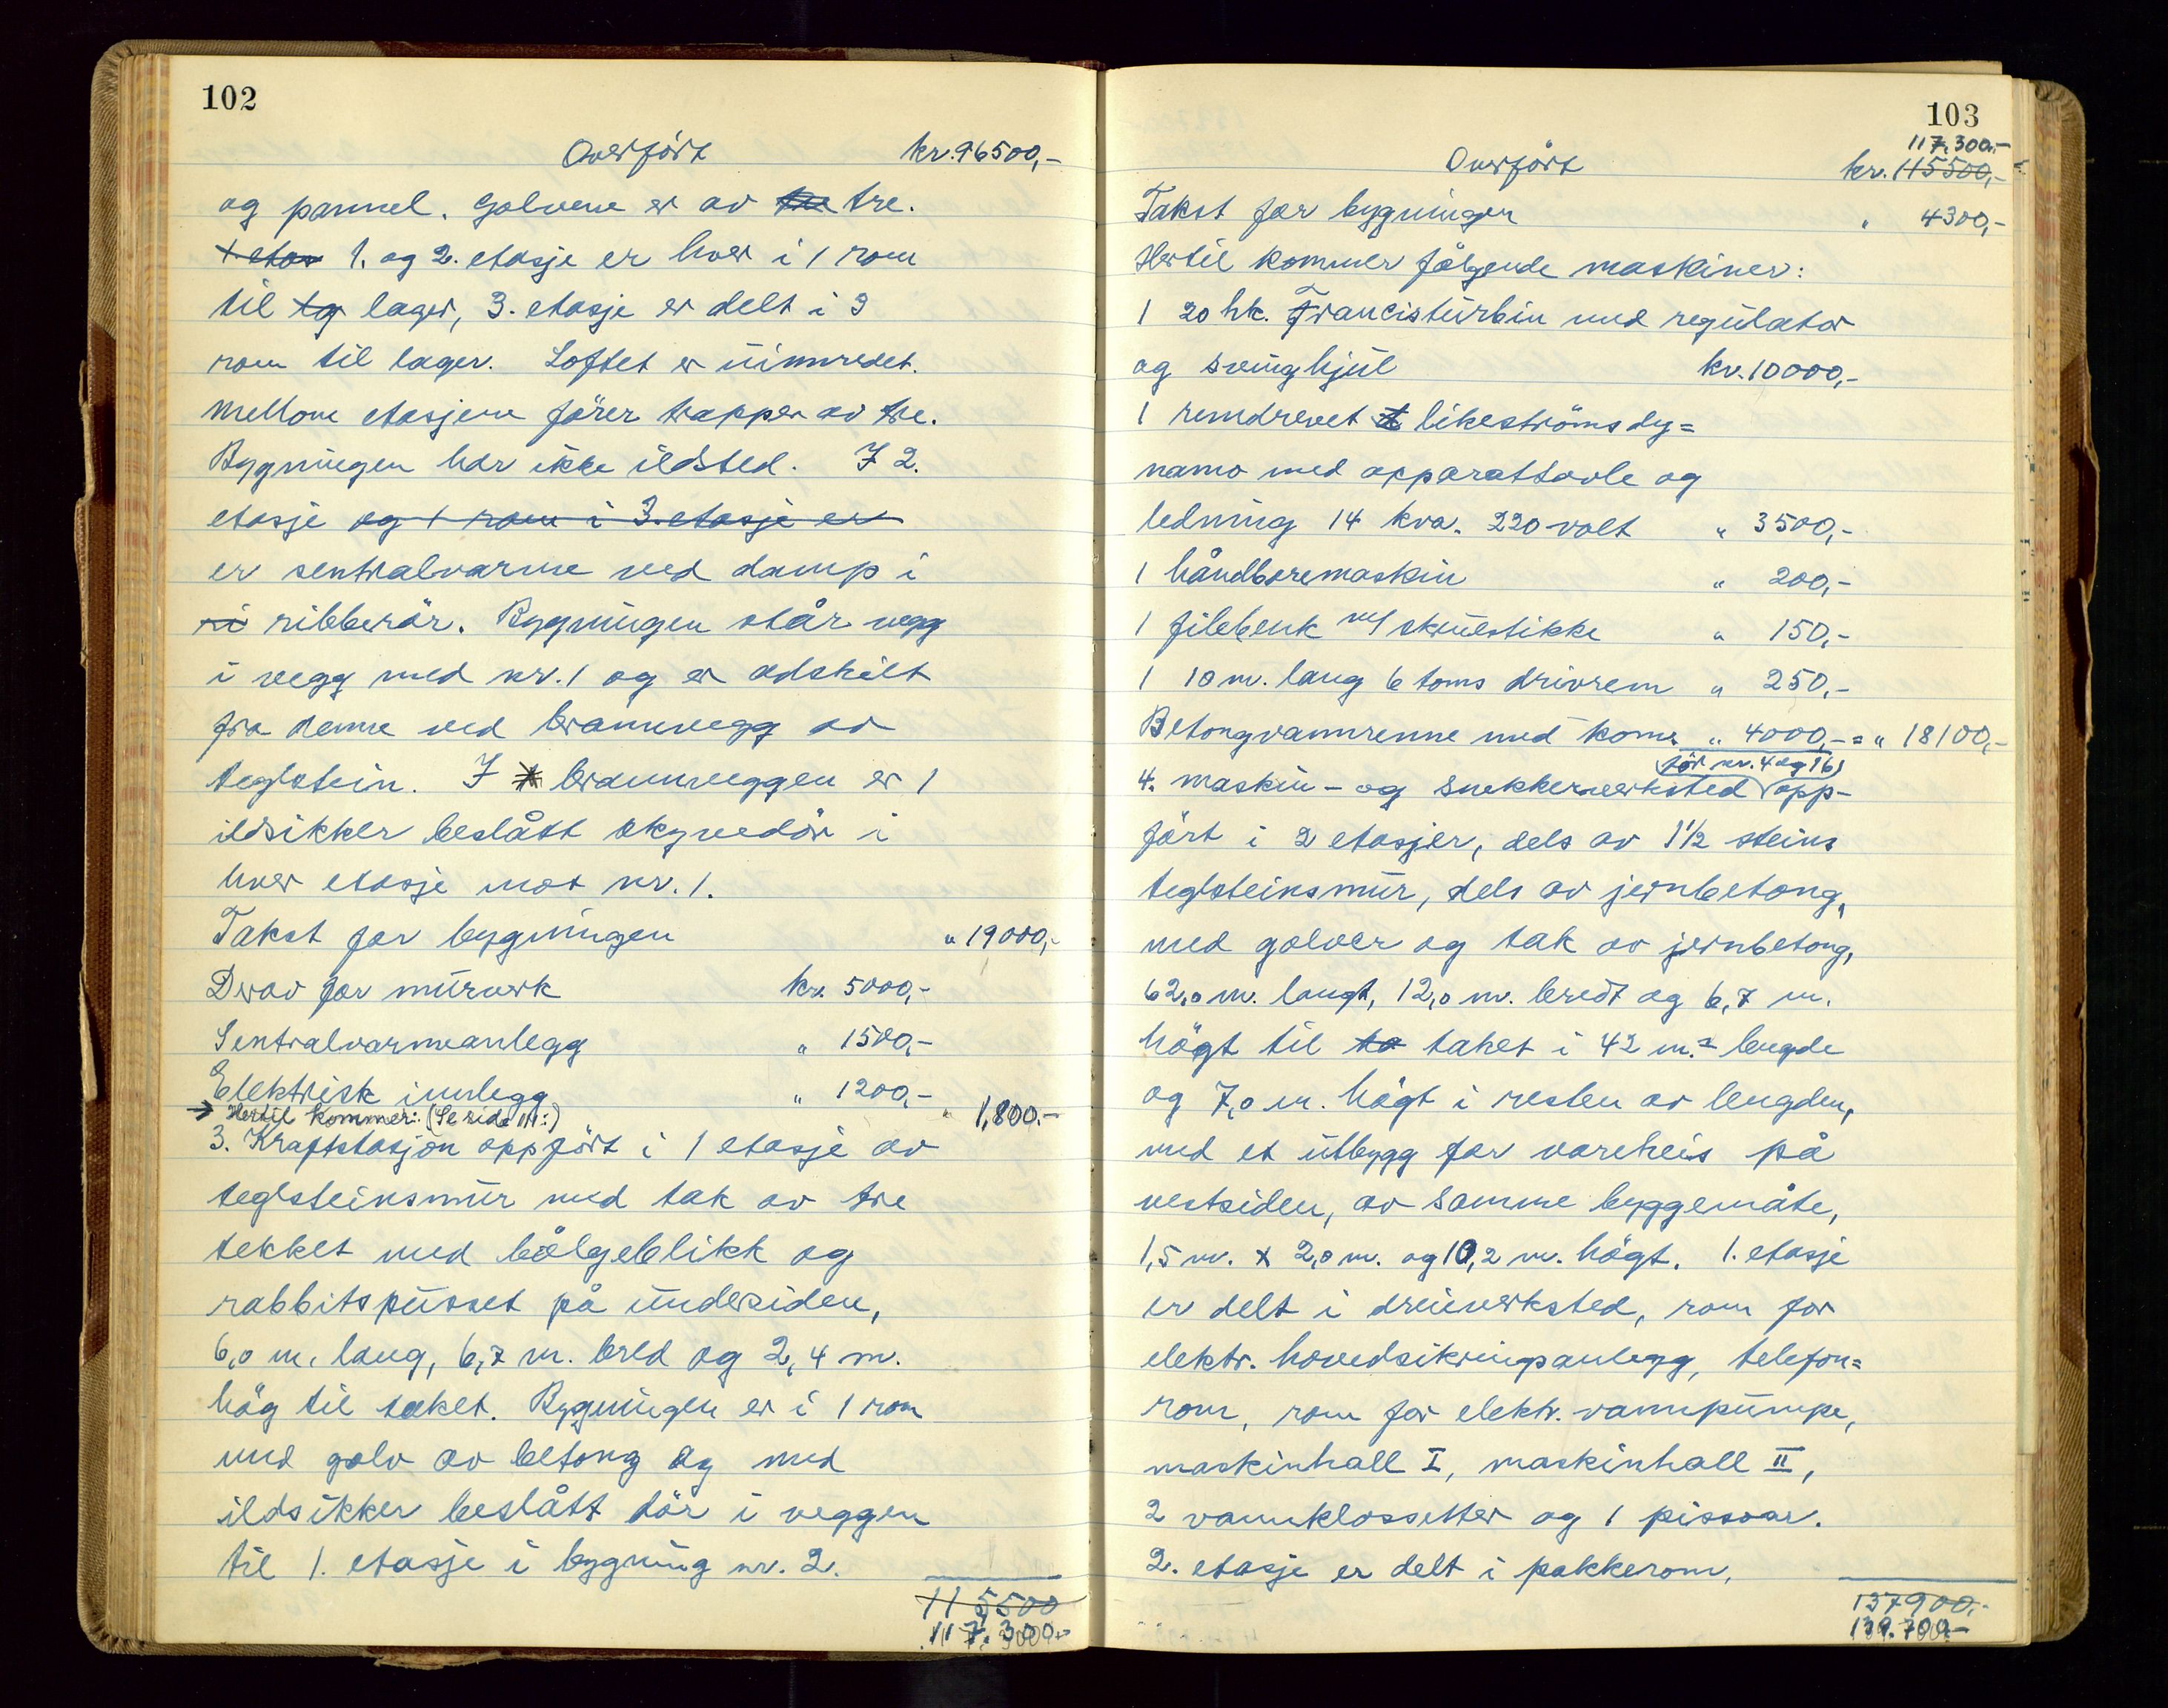 102
Overført kr. 96500,-
og pannel. Golvene er av tre tre.
1. etas 1. og 2. etasje er hver i 1 rom
til lag lager, 3. etasje er delt i 3
rom til lager. Loftet er uinnredet.
Mellom etasjene fører trapper av tre.
Bygningen har ikke ildsted. I 2.
etasje og 1 rom i 3. etasje er
er sentralvarme ved damp i
ri ribberør. Bygningen står vegg
i vegg med nr. 1 og er adskilt
fra denne ved brannvegg av
teglstein. I brannveggen er 1
ildsikker beslått skyvedør i
hver etasje mot nr. 1.
Takst for bygningen " 19000,-
Derav for murverk kr. 5000,-
Sentralvarmeanlegg " 1500,-
Elektrisk innlegg " 1200,-
→ Hertil kommer: (Se side 111:) " 1,800.-
3. Kraftstasjon oppført i 1 etasje av
teglsteinsmur med tak av tre
tekket med bølgeblikk og
rabbitspusset på undersiden,
6,0 m. lang, 6,7 m. bred og 2,4 m.
høg til taket. Bygningen er i 1 rom
med golv av betong og med
ildsikker beslått dør i veggen
til 1. etasje i bygning nr. 2.
115500
117.300.-
103
117.300.-
Overført kr. 115500,-
Takst for bygningen " 4300,-
Hertil kommer følgende maskiner:
1 20 hk. Francisturbin med regulator
og svinghjul kr. 10000,-
1 remdrevet likestrømsdy=
namo med apparattavle og
ledning 14 kva. 220 volt " 3500,-
1 håndboremaskin " 200,-
1 filebenk m/ skruestikke " 150,-
1 10 m. lang 6 toms drivrem " 250,-
Betongvannrenne med kom. " 4000,- = " 18100,-
(før nr. 4 og 16)
4. Maskin- og snekkerverksted opp-
ført i 2 etasjer, dels av 1 1/2 steins
teglsteinsmur, dels av jernbetong,
med golver og tak av jernbetong,
62,0 m. langt, 12,0 m. bredt og 6,7 m.
høgt til ta taket i 42 m.s lengde
og 7,0 m. høgt i resten av lengden,
med et utbygg for vareheis på
vestsiden, av samme byggemåte,
1,5 m. x 2,0 m. og 10,2 m. høgt. 1. etasje
er delt i dreieverksted, rom for
elektr. hovedsikringsanlegg, telefon=
rom, rom for elektr. vannpumpe,
maskinhall I, maskinhall II,
2 vannklossetter og 1 pissoar.
2. etasje er delt i pakkerom,
137900.-
139.700.-